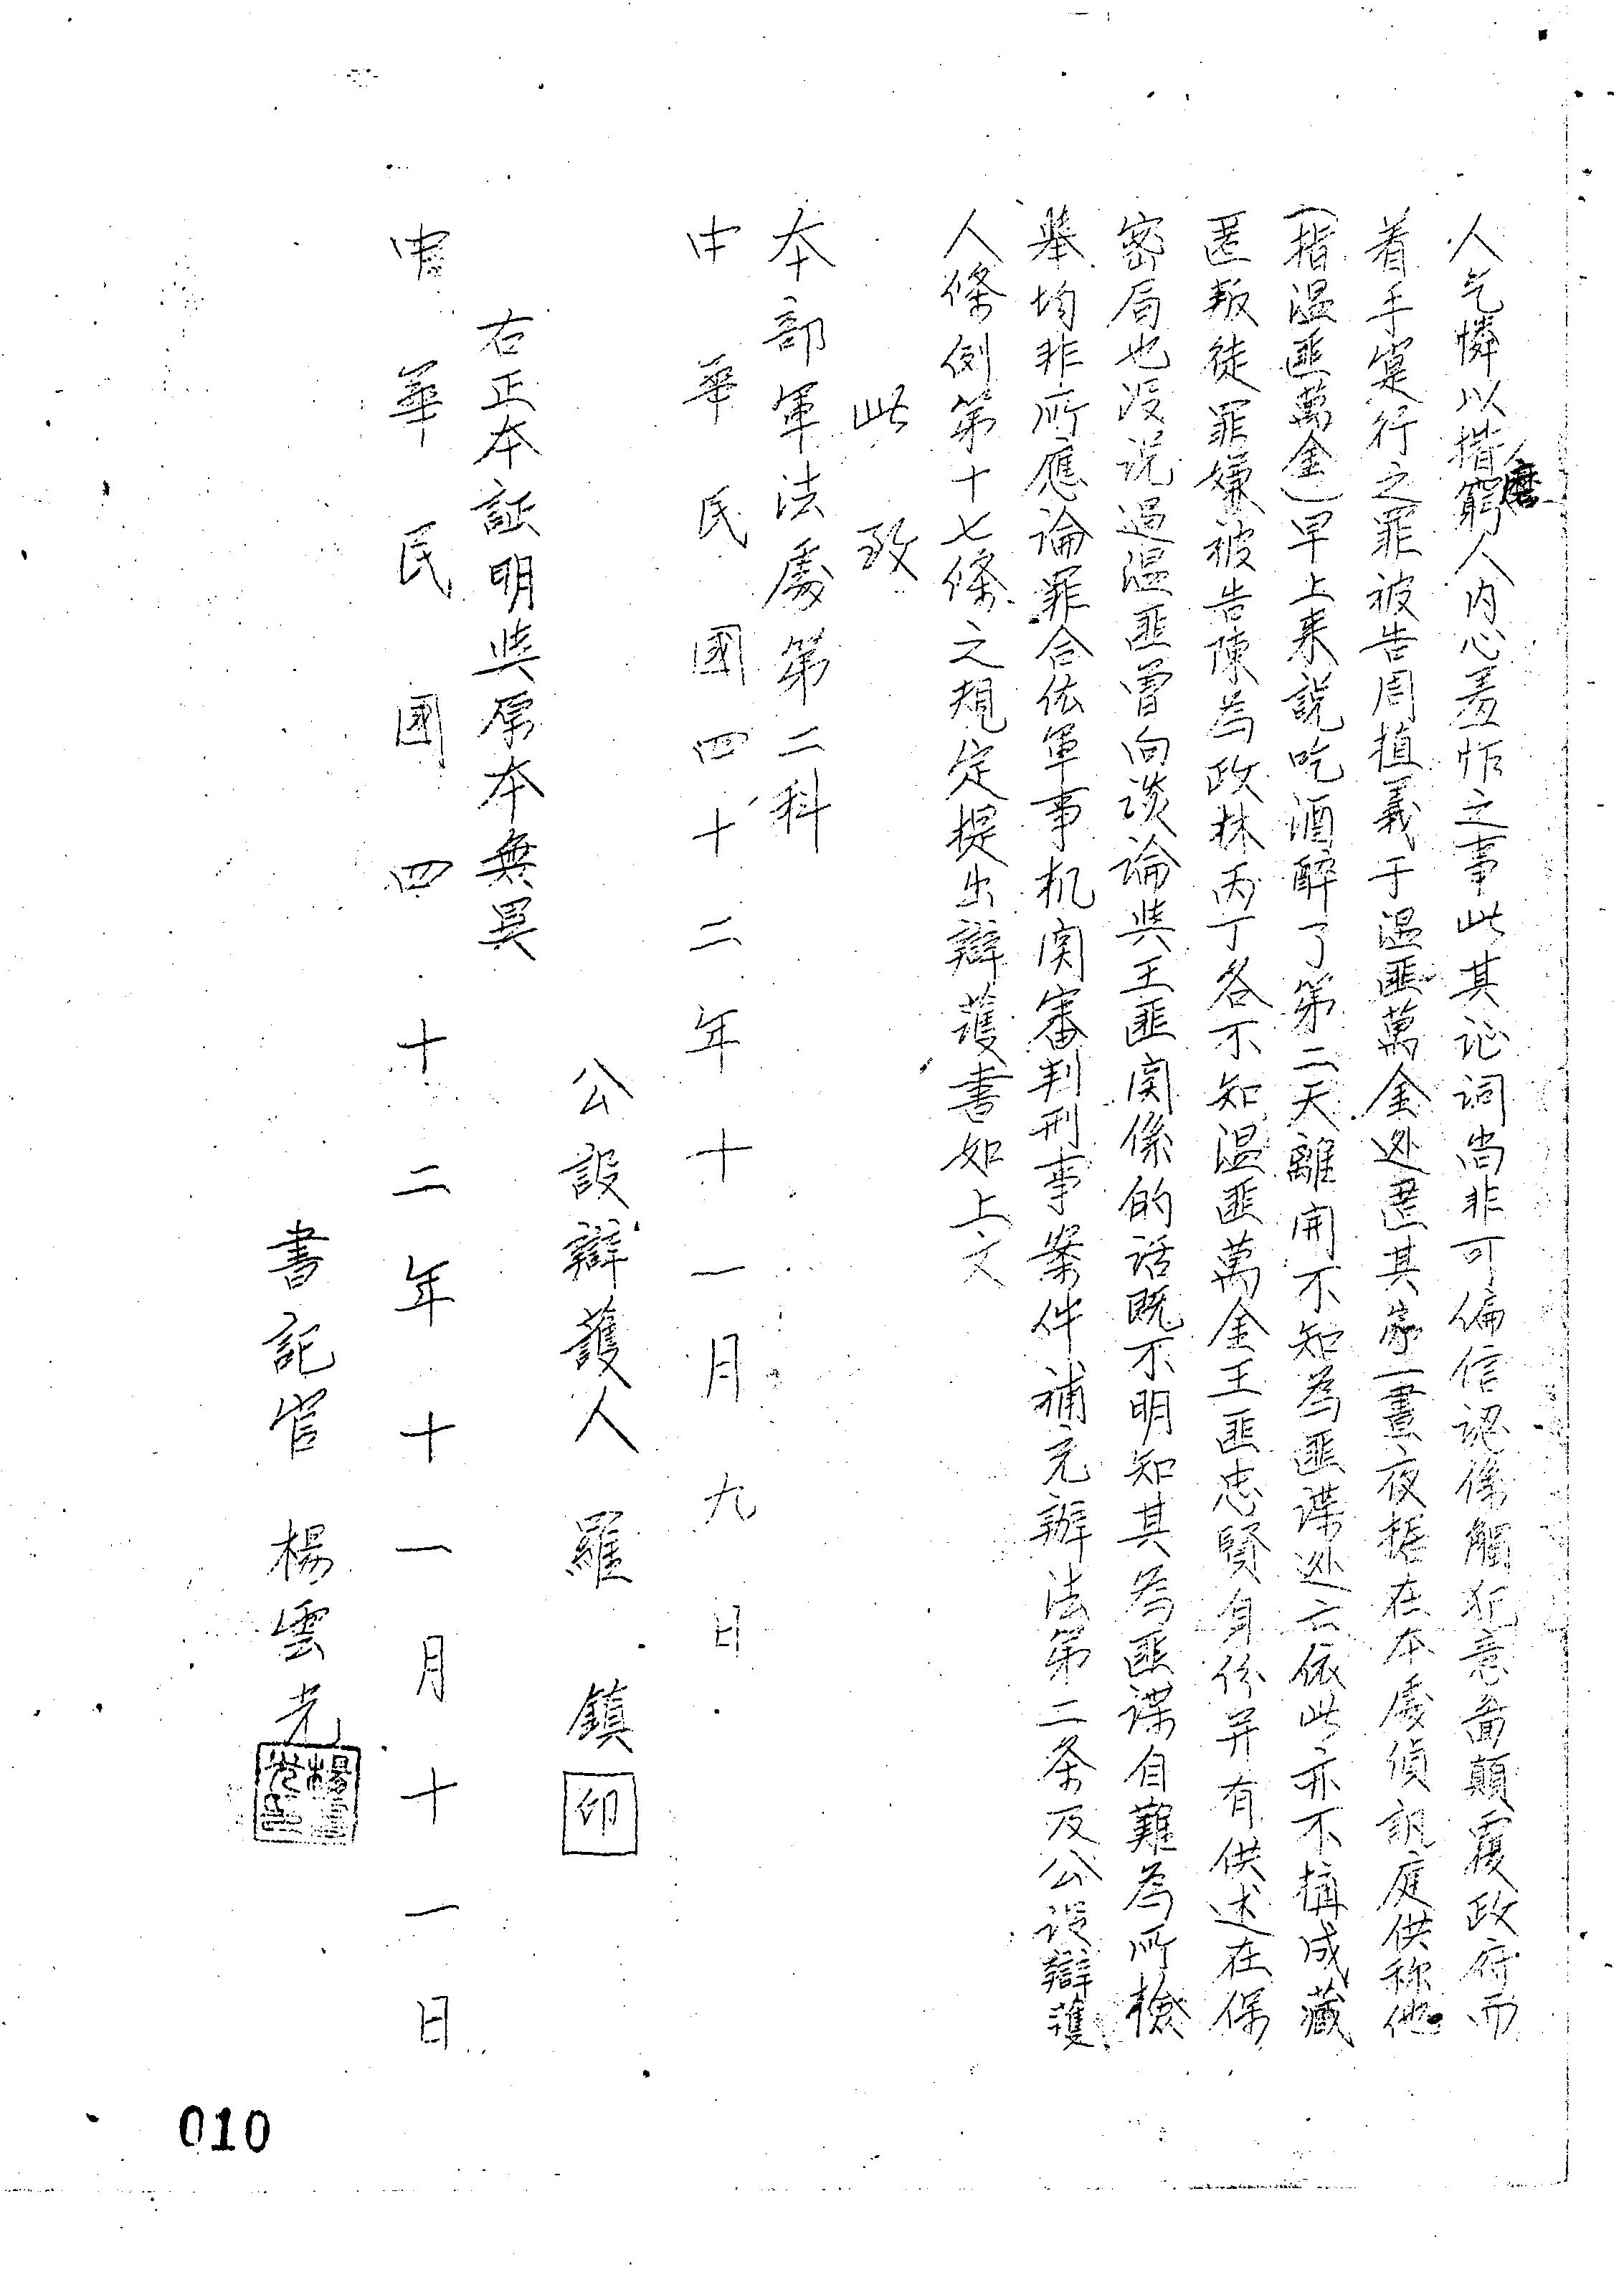 人乞憐以揩窮人內心羞怍之事此其证词尚非可偏信認係觸犯意啚顛覆政府而
磨
着手寔行之罪被告周植義于温匪萬金逃匿其家一晝夜据在本處偵訊庭供称他
(指温匪萬金)早上来説吃酒醉了第二天離開不知為匪谍逃亡依此亦不搆成藏
匿叛徒罪嫌被告陳為政林丙丁各不知温匪萬金王匪忠賢身份并有供述在保
密局也没说过温匪曾向谈論與王匪関係的话既不明知其為匪谍自難為所檢
舉均非所應論罪合依軍事机関審判刑事案件補充辦法第二条及公设辯護
人條例第十七條之規定提出辯護書如上文
此致
本部軍法處第二科
中華民國四十二年十一月九日
公設辯護人 羅鎮 印
右正本証明與原本無異
中華民國四十二年十一月十一日
書記官 楊雲光
010